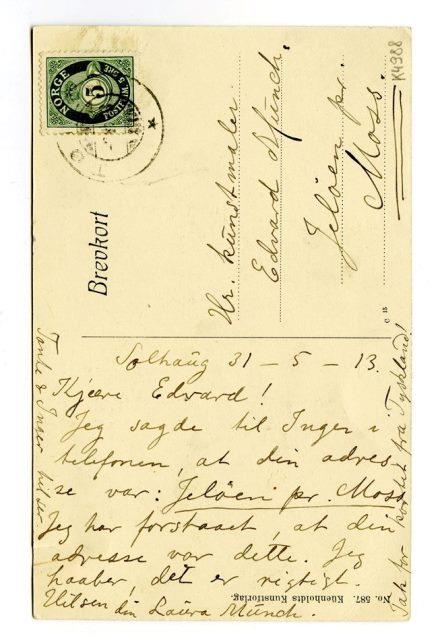 K4988
NORGE
5
POSTFRIM 5 ØRE
Brevkort
Hr. kunstmaler
Edvard Munch.
Jeløen pr.
Moss.
C 15
Solhaug 31 - 5 - 13.
Kjære Edvard!
Jeg sagde til Inger i
telefonen, at din adres-
se var: Jeløen pr. Moss
Jeg har forstaaet, at din
adresse var dette. Jeg
haaber, det er rigtigt.
Hilsen din Laura Munch.
Tante & Inger hilser
Tak for kortet fra Tyskland!
No. 587. Kuenholdts Kunstforlag.